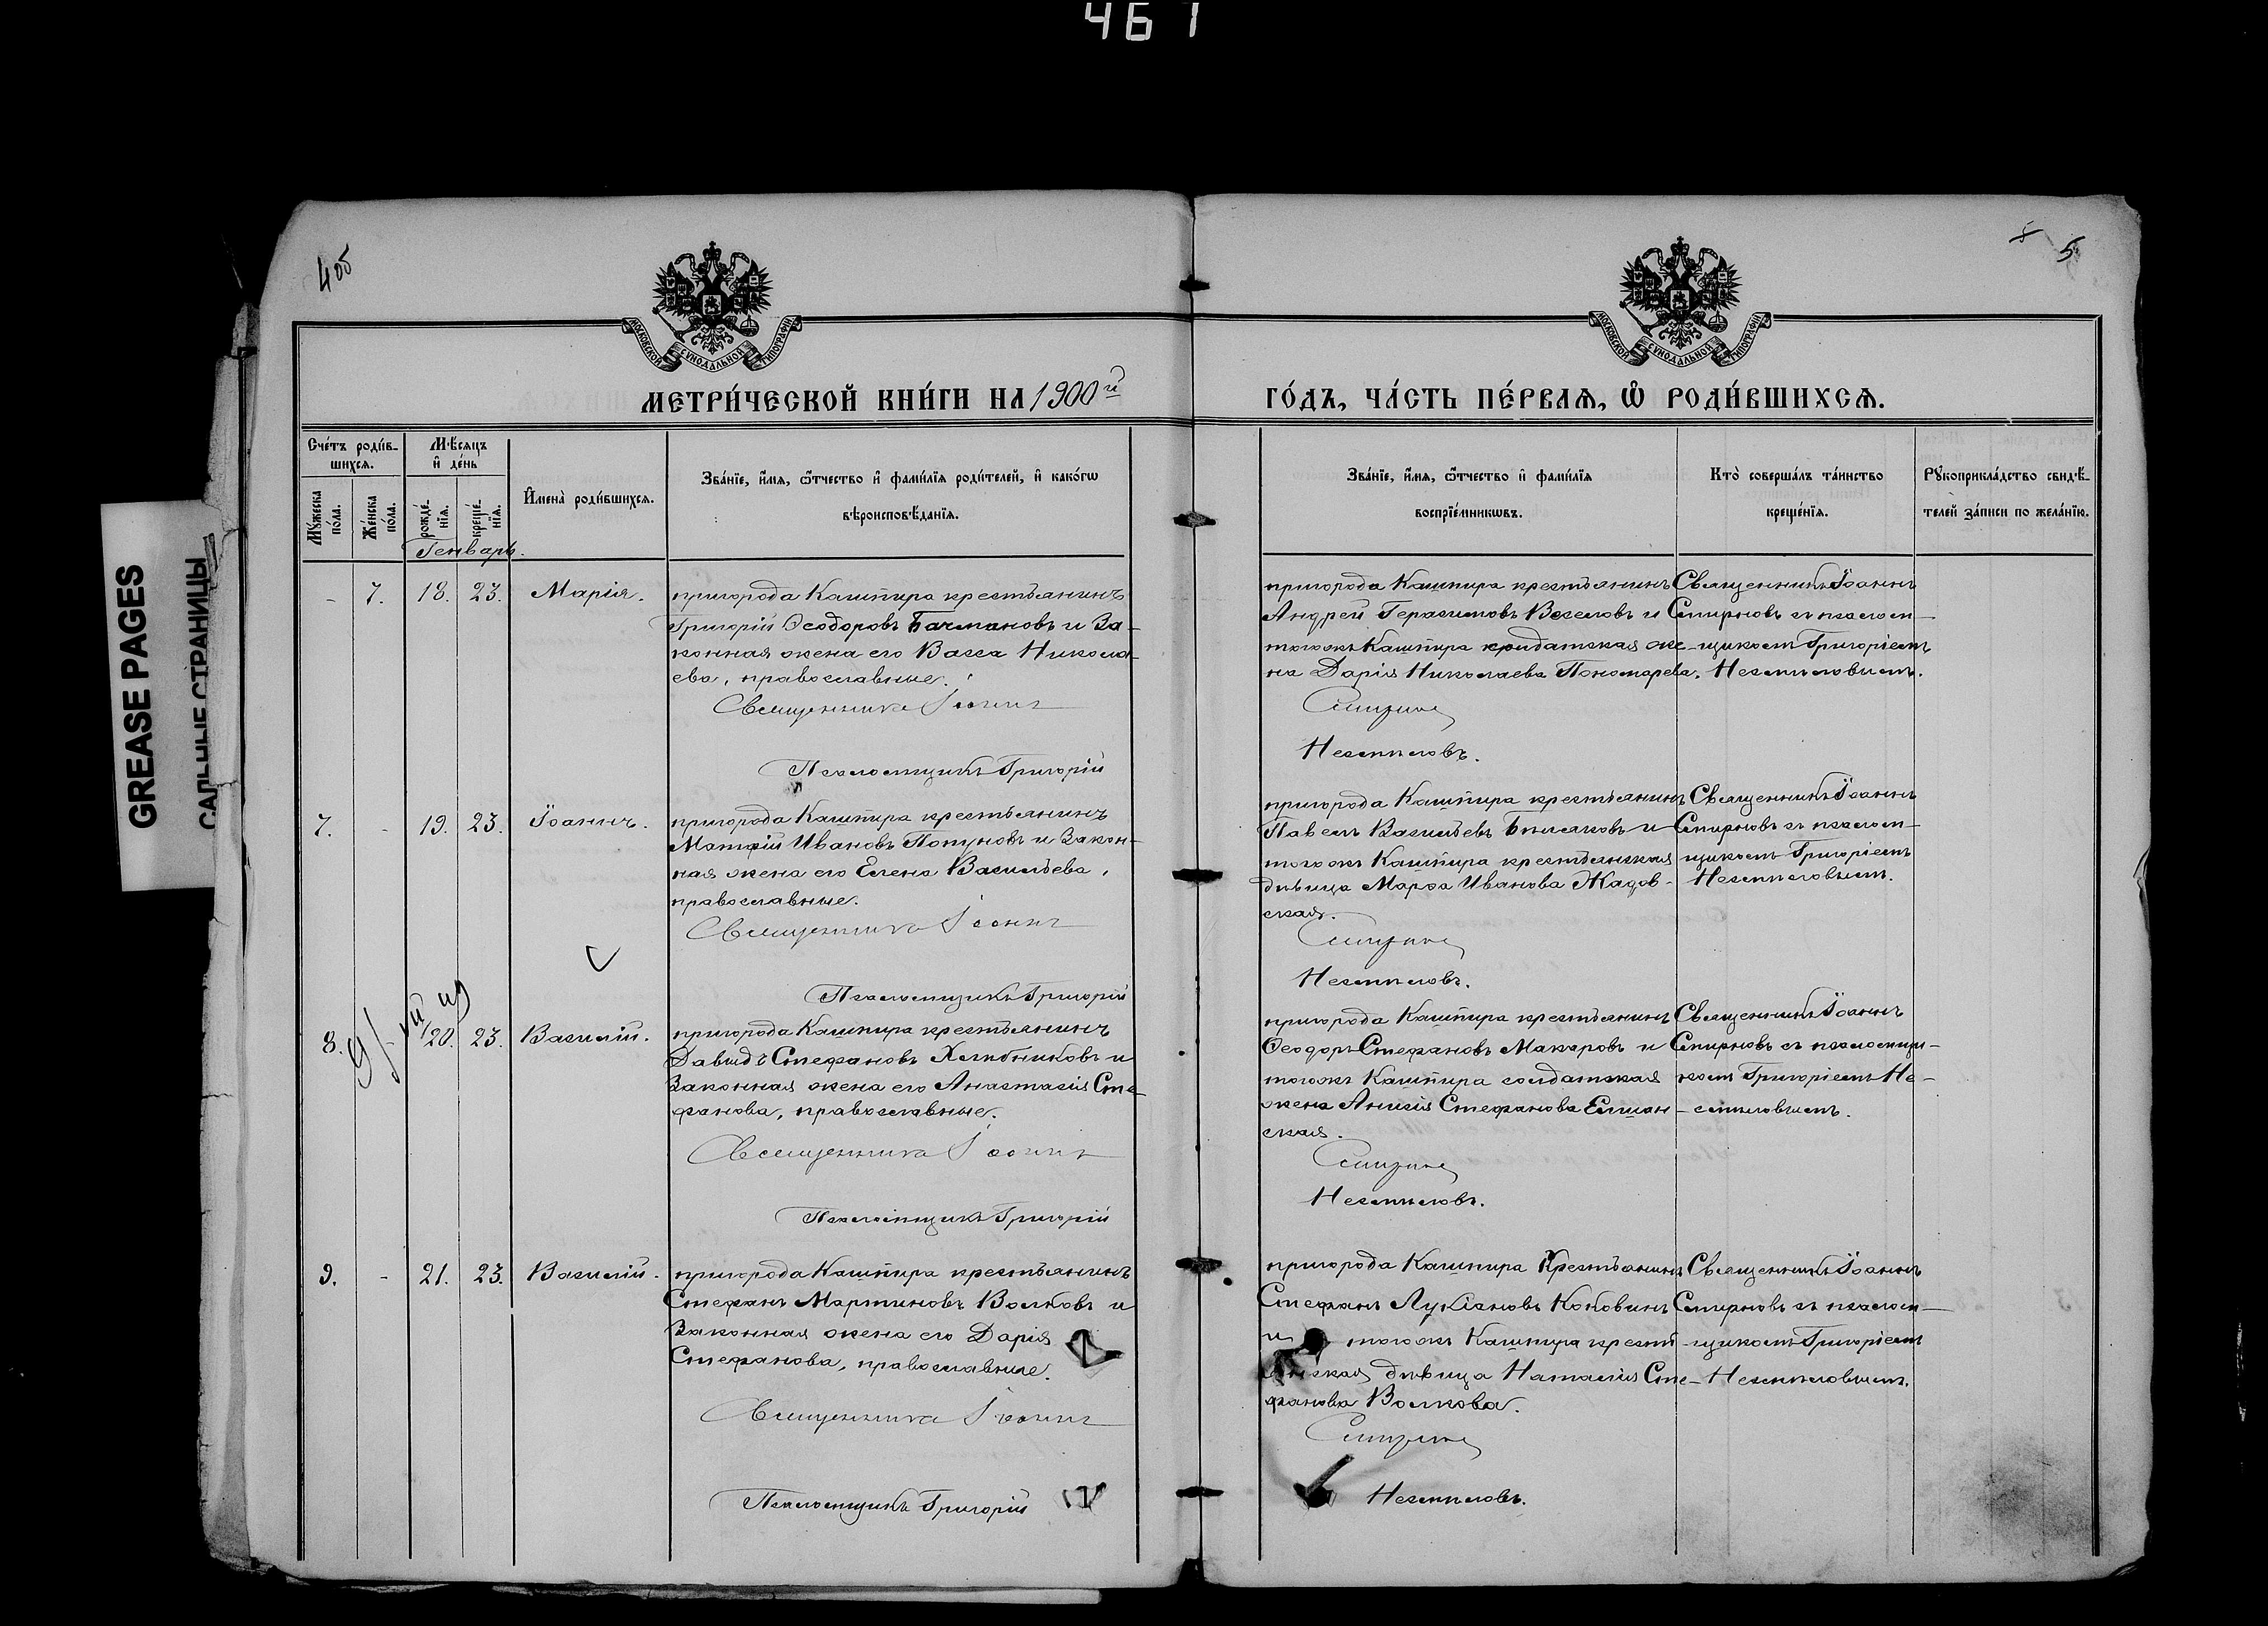 461
GREASE PAGES
САЛЬНЫЕ СТРАНИЦЫ
4 об
5
МОСКОВСКОЙ СѴНОДАЛЬНОЙ ТИПОГРАФІИ
МОСКОВСКОЙ СѴНОДАЛЬНОЙ ТИПОГРАФІИ
МЕТРИ́ЧЕСКОЙ КНИ́ГИ НА 1900й
ГО́ДЪ, ЧА́СТЬ ПЕ́РВАѦ, Ѡ҆ РОДИ́ВШИХСѦ.
Сче́тъ роди́в-
шихсѧ.
Мꙋ́жеска
по́ла.
Же́нска
по́ла.
Мѣ́сѧцъ
и҆ де́нь
рожде́-
нїѧ.
креще́-
нїѧ.
И҆мена̀ роди́вшихсѧ.
Зва́нїе, и҆́мѧ, ѻ҆́тчество и҆ фами́лїѧ роди́телей, и҆ како́гѡ
вѣроисповѣ́данїѧ.
Зва́нїе, и҆́мѧ, ѻ҆́тчество и҆ фами́лїѧ
воспрїе́мникѡвъ.
Кто̀ соверша́лъ та́инство
креще́нїѧ.
Рꙋкоприкла́дство свидѣ́-
телей за́писи по жела́нїю.
Генварь.
- 7. 18. 23. Марія.
пригорода Кашпира крестьянинъ
Григорій Ѳеодоровъ Бачмановъ и за-
конная жена его Васса Никола-
ева, православные.
Священникъ Іоаннъ
Псаломщикъ Григорій
пригорода Кашпира крестьянинъ
Андрей Герасимовъ Веселовъ и
тогожъ Кашпира солдатская же-
на Дарія Николаева Пономарева.
Смирновъ
Несмѣловъ.
Священникъ Іоаннъ
Смирновъ съ псалом-
щикомъ Григоріемъ
Несмѣловымъ.
7. - 19. 23. Іоаннъ.
пригорода Кашпира крестьянинъ
Матѳій Ивановъ Попуновъ и закон-
ная жена его Елена Васильева,
православные.
Священникъ Іоаннъ
Псаломщикъ Григорій
пригорода Кашпира крестьянинъ
Павелъ Васильевъ Бѣляковъ и
тогожъ Кашпира крестьянская
дѣвица Марѳа Иванова Жадов-
ская.
Смирновъ
Несмѣловъ.
Священникъ Іоаннъ
Смирновъ съ псалом-
щикомъ Григоріемъ
Несмѣловымъ.
8. 20. 23. Василій.
пригорода Кашпира крестьянинъ
Давидъ Стефановъ Хлѣбниковъ и
законная жена его Анастасія Сте-
фанова, православные.
Священникъ Іоаннъ
Псаломщикъ Григорій
пригорода Кашпира крестьянинъ
Ѳеодоръ Стефановъ Макаровъ и
тогожъ Кашпира солдатская
жена Анисія Стефанова Елшан-
ская.
Смирновъ
Несмѣловъ.
Священникъ Іоаннъ
Смирновъ съ псаломщи-
комъ Григоріемъ Не-
смѣловымъ.
9. - 21. 23. Василій.
пригорода Кашпира крестьянинъ
Стефанъ Мартиновъ Волковъ и
законная жена его Дарія
Стефанова, православные.
Священникъ Іоаннъ
Псаломщикъ Григорій
пригорода Кашпира Крестьянинъ
Стефанъ Лукіановъ Коковинъ
и тогожъ Кашпира кресть-
янская дѣвица Наталія Сте-
фанова Волкова.
Смирновъ
Несмѣловъ.
Священникъ Іоаннъ
Смирновъ съ псалом-
щикомъ Григоріемъ
Несмѣловымъ.